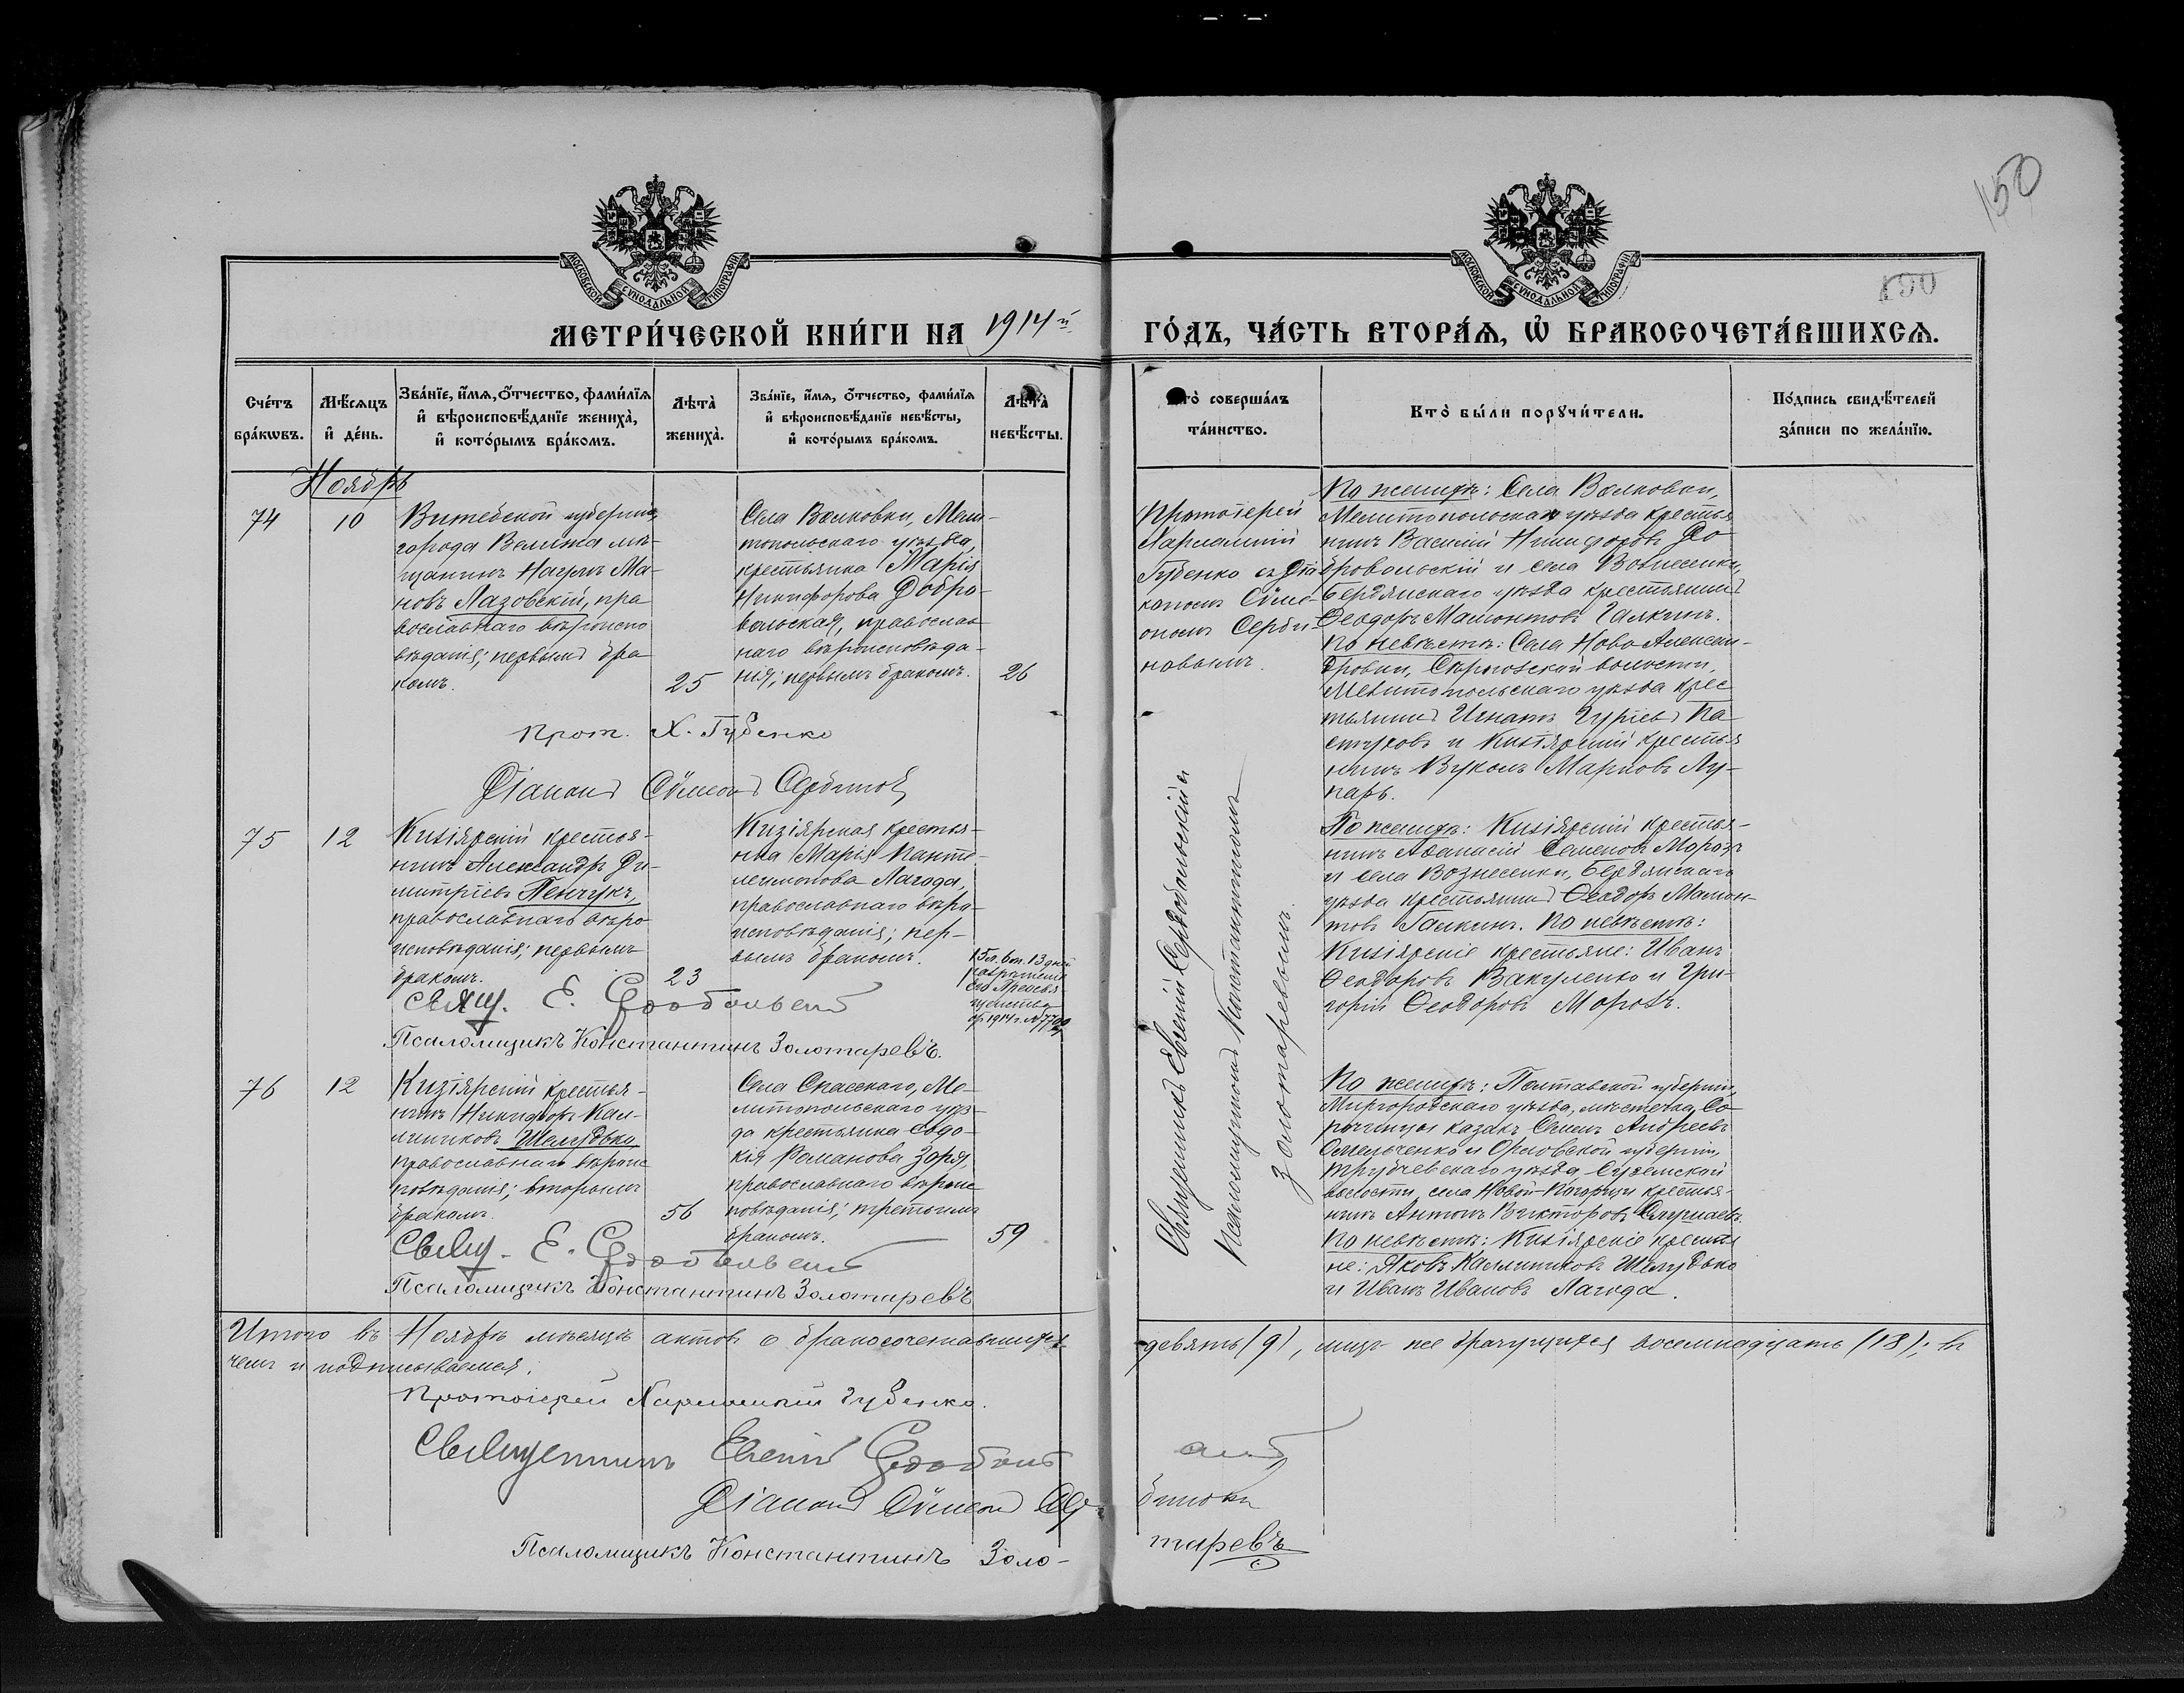 150
190
МОСКОВСКОЙ СѴНОДАЛЬНОЙ ТИПОГРАФІИ
МОСКОВСКОЙ СѴНОДАЛЬНОЙ ТИПОГРАФІИ
МЕТРИ́ЧЕСКОЙ КНИ́ГИ НА 1914й ГО́ДЪ, ЧА́СТЬ ВТОРА́Ѧ, Ѡ҆ БРАКОСОЧЕТА́ВШИХСѦ.
Сче́тъ бра́кωвъ.
Мѣ́сяцъ и҆ де́нь.
Зва́нїе, и҆́мѧ, ѻ҆́тчество, фами́лїѧ
и҆ вѣроисповѣ́данїе жениха̀,
и҆ кото́рымъ бра́комъ.
Лѣта̀ жениха̀.
Зва́нїе, и҆́мѧ, ѻ҆́тчество, фами́лїѧ
и҆ вѣроисповѣ́данїе невѣ́сты,
и҆ кото́рымъ бра́комъ.
Лѣта̀ невѣ́сты.
Кто̀ соверша́лъ та́инство.
Кто̀ бы́ли порꙋчи́тели.
По́дпись свидѣ́телей
за́писи по жела́нїю.
Ноябрь
74
10
Витебской губерніи,
города Велижа мѣ-
щанинъ Наумъ Ма-
новъ Лазовскій, пра
вославнаго вѣроиспо
вѣданія; первымъ бра
комъ.
25
Села Волковки, Мели-
топольскаго уѣзда,
крестьянка Марія
Никифорова Добро-
вольская, православ
наго вѣроисповѣда-
нія; первымъ бракомъ.
26
Протоіерей
Харлампій
Губенко съ діа
кономъ Сѵме-
ономъ Серби-
новымъ.
По женихѣ: Села Волковки,
Мелитопольскаго уѣзда крестья
нинъ Василій Никифоровъ До
бровольскій и села Вознесенки,
Бердянскаго уѣзда крестьянинъ
Ѳеодоръ Мамонтовъ Галкинъ.
По невѣстѣ: Села Ново Алексан-
дровки, волости,
Мелитопольскаго уѣзда крес
тьянинъ Игнатъ Гуріевъ Па
стуховъ и Кизіярскій крестья
нинъ Вуколъ Марковъ Лу-
нарь.
Прот. Х. Губенко
Діаконъ Сѵмеонъ Сербиновъ
75
12
Кизіярскій крестья-
нинъ Александръ Ди-
митріевъ Пенчукъ,
православнаго вѣро
исповѣданія; первымъ
бракомъ.
23
Кизіярская крестья-
нка Марія Панте-
леимонова Лагода,
православнаго вѣро-
исповѣданія; пер-
вымъ бракомъ.
15 л. 6 м. 13 дней
Его Преосвя
щенства
1914 г. № 7700
Священникъ Евгеній Сердобольскій съ
псаломщикомъ Константиномъ
Золотаревымъ.
По женихѣ: Кизіярскій крестья-
нинъ Аѳанасій Семеновъ Морозъ
и села Вознесенки, Бердянскаго
уѣзда крестьянинъ Ѳеодоръ Мамон-
товъ Галкинъ. По невѣстѣ:
Кизіярскіе крестьяне: Иванъ
Ѳеодоровъ Вакуленко и Гри-
горій Ѳеодоровъ Морозъ.
Свящ. Е. Сердобольскій
Псаломщикъ Константинъ Золотаревъ.
76
12
Кизіярскій крестья-
нинъ Никифоръ Кал-
линиковъ Шелудько
православнаго вѣроис
повѣданія; вторымъ
бракомъ.
56
Села Спасскаго, Ме-
литопольскаго уѣз-
да крестьянка Евдо-
кія Романова Заря,
православнаго вѣроис
повѣданія; третьимъ
бракомъ.
59
По женихѣ: Полтавской губерніи,
Миргородскаго уѣзда, мѣстечка Со
рочинцы казакъ Семенъ Андреевъ
Омельченко и Орловской губерніи,
Трубчевскаго уѣзда Суземской
волости, села Новой-Погощи крестья-
нинъ Антонъ Викторовъ
По невѣстѣ: Кизіярскіе крестья
не: Яковъ Каллиниковъ Шелудько
и Иванъ Ивановъ Лагода.
Свящ. Е. Сердобольскій
Псаломщикъ Константинъ Золотаревъ
Итого въ Ноябрѣ мѣсяцѣ актовъ о бракосочетавшихся девять (9), лицъ же брачущихся восемнадцать (18); въ
чемъ и подписываемся.
Протоіерей Харлампій Губенко.
Священникъ Евгеній Сердобольскій
Діаконъ Сѵмеонъ Сербиновъ
Псаломщикъ Константинъ Золо-
таревъ